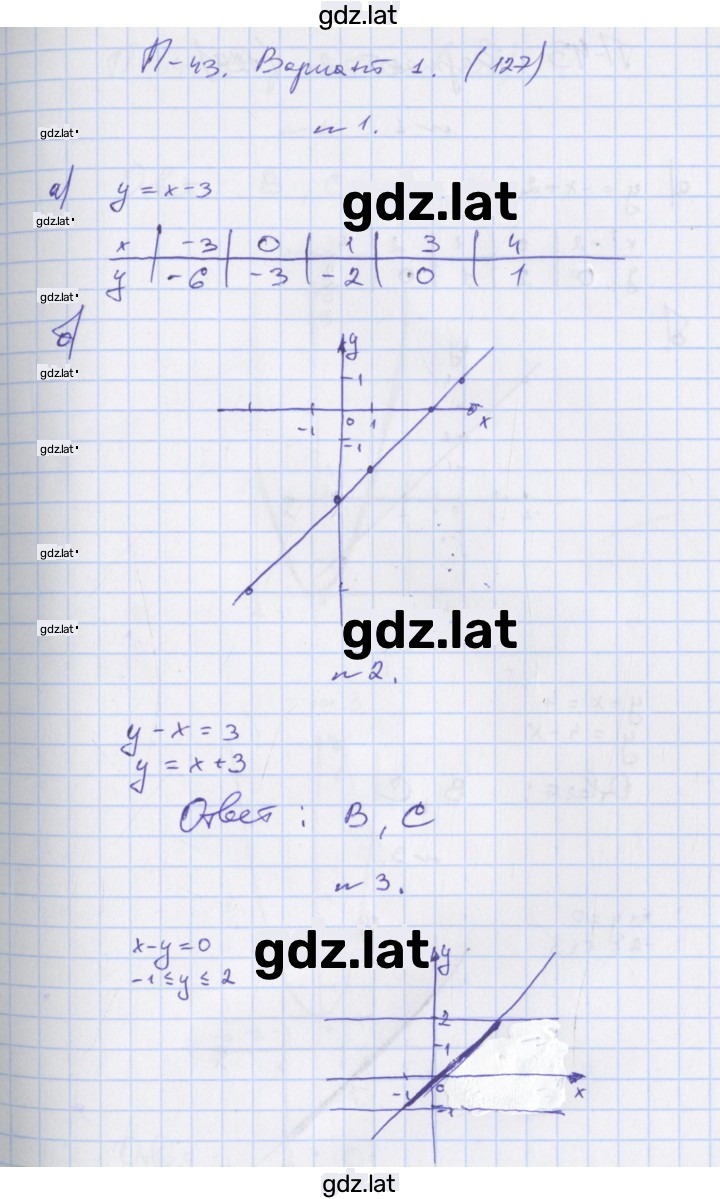 gdz.lat
П-43. Вариант 1. (127)
gdz.lat
n 1.
а) y = x - 3
gdz.lat
gdz.lat
x | -3 | 0 | 1 | 3 | 4
y | -6 | -3 | -2 | 0 | 1
gdz.lat
б)
y
gdz.lat
1
-1 0 1 x
-1
gdz.lat
gdz.lat
gdz.lat
gdz.lat
n 2.
y - x = 3
y = x + 3
Ответ: B, C
n 3.
x - y = 0
gdz.lat
y
-1 ≤ y ≤ 2
2
1
-1 0 x
-1
gdz.lat